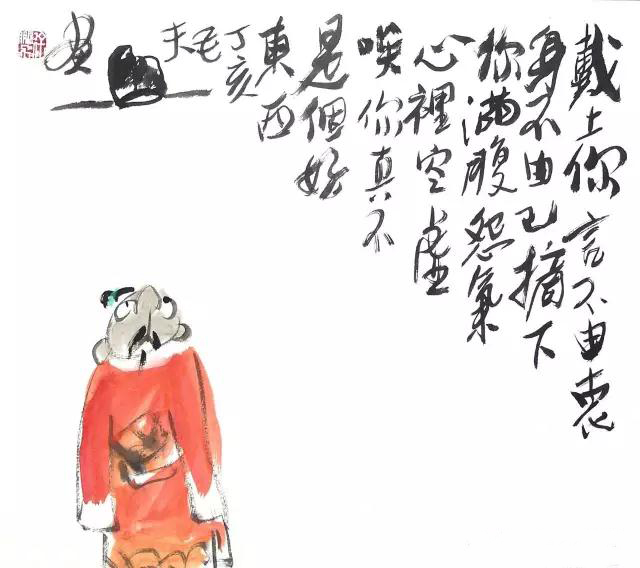 戴上你言不由衷
身不由已摘下
你滿腹怨氣
心裡空虛
唉你真不
是個好
東西
丁亥
画